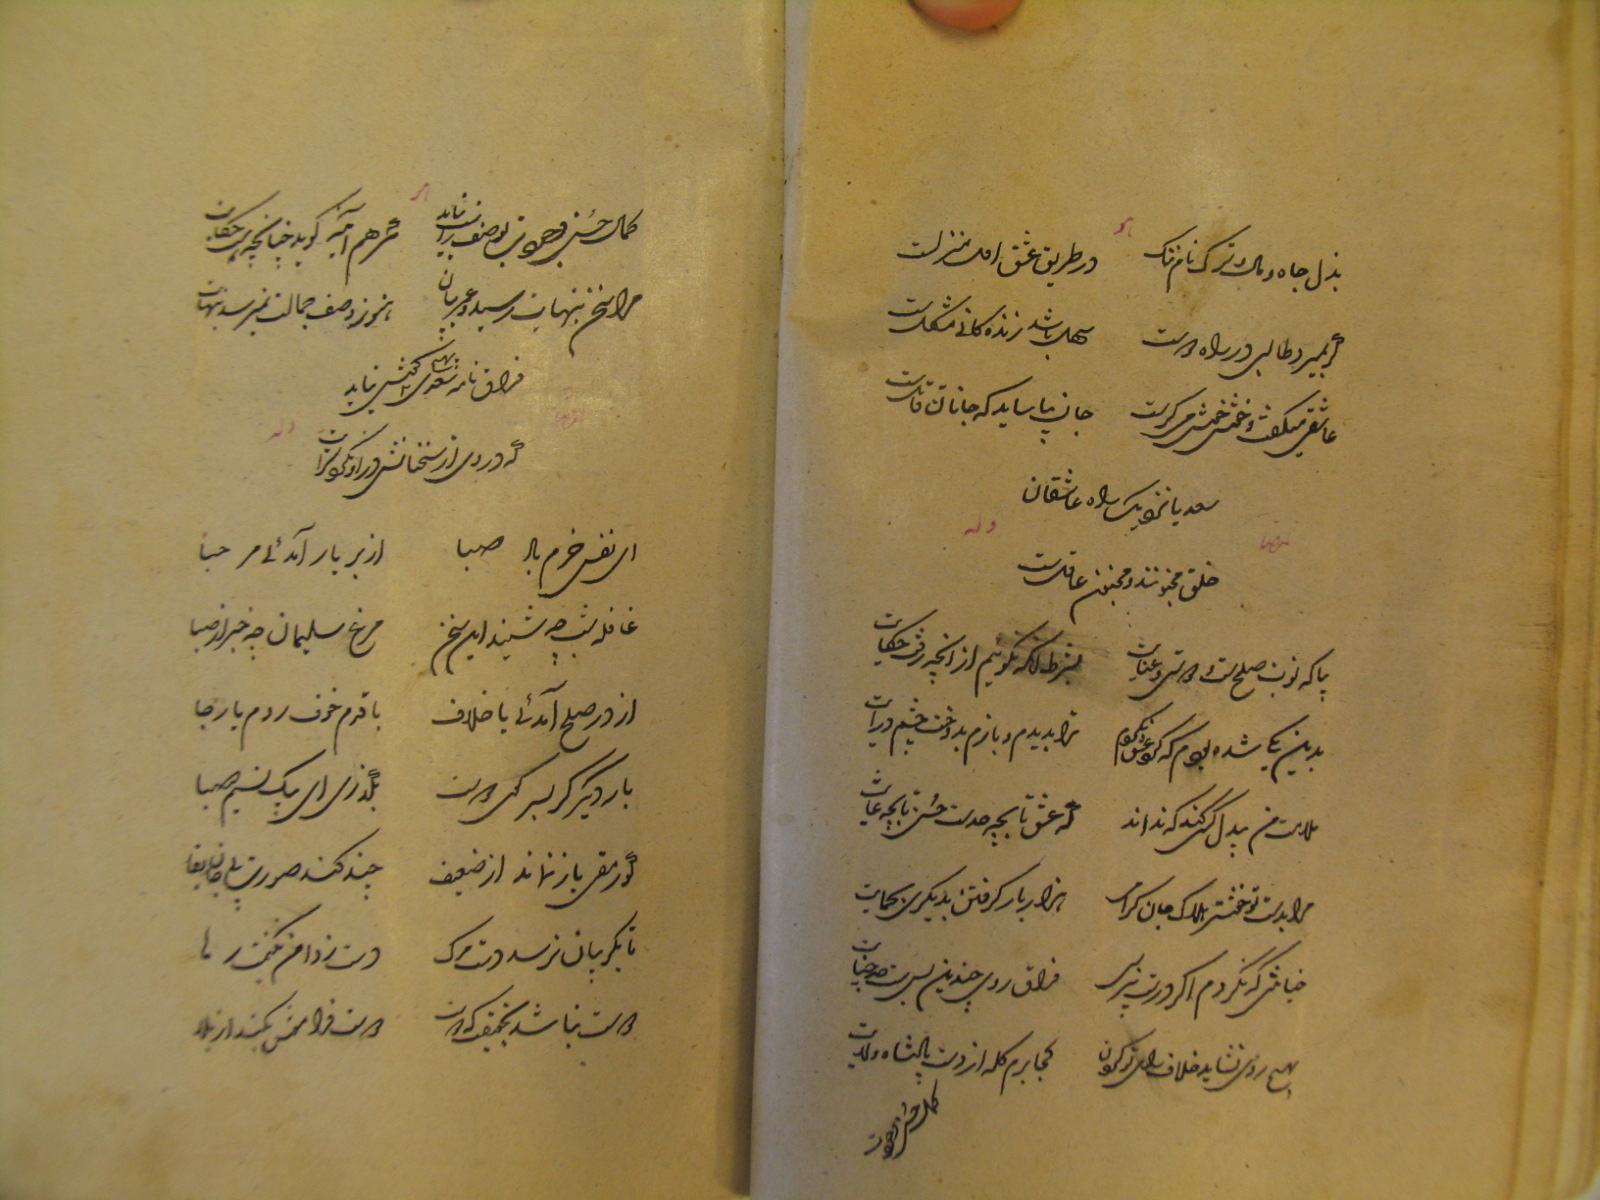 بذل جاه و مال و ترک نام و ننگ در طریق عشق اول منزلست
گر بمیرد طالبی در راه دوست سهل باشد زندگانی مشکلست
عاشقی میگفت و خوش خوش میگریست جان بیاساید که جانان قاتلست
سعدیا نزدیک راه عاشقان
وله
خلق مجنونند و مجنون عاقلست
بیا که نوبت صلحست و دوستی و عنایت بشرط آنکه نگوئیم از آنچه رفت حکایت
بدین یکی شده بودم که گرد عشق نگردم ترا بدیدم و بازم بدوخت چشم درایت
ملامت من بیدل کسی کند که نداند که عشق تا بچه حدست حسن تا بچه غایت
مرا بدست تو خوشتر هلاک جان گرامی هزار بار که رفتن بدیگری بحمایت
جنایتی که نکردم اگر درست بپرسی فراق روی چندین بس است حد جنایت
بهیچ روی نشاید خلاف رای تو کردن کجا برم گله از دست پادشاه ولایت
کمال حسن وجودت
کمال حسن وجودت بوصف راست نیاید مگر هم آینه گوید چنانچه هست حکایت
مرا سخن بنهایت رسید و عمر بپایان هنوز وصف جمالت نمیرسد بنهایت
فراق نامه سعدی بهیچ گوش نیاید
وله
که دردی از سخنانش در او نکرد سرایت
ای نفس خرم باد صبا از بر یار آمدئی مرحبا
قافله شب چه شنیدی این سخن مرغ سلیمان چه خبر از صبا
از در صلح آمدئی یا خلاف با قدم خوف روم یا رجا
بار دیگر گر بسر کوی دوست بگذری ای پیک نسیم صبا
گو رمقی باز نماند از ضعیف چند کند صورت بی جان بقا
تا بگریبان نرسد دست مرگ دست ز دامن نکنمت رها
دوست نباشد بحقیقت که دوست دوست فراموش کند از بلا